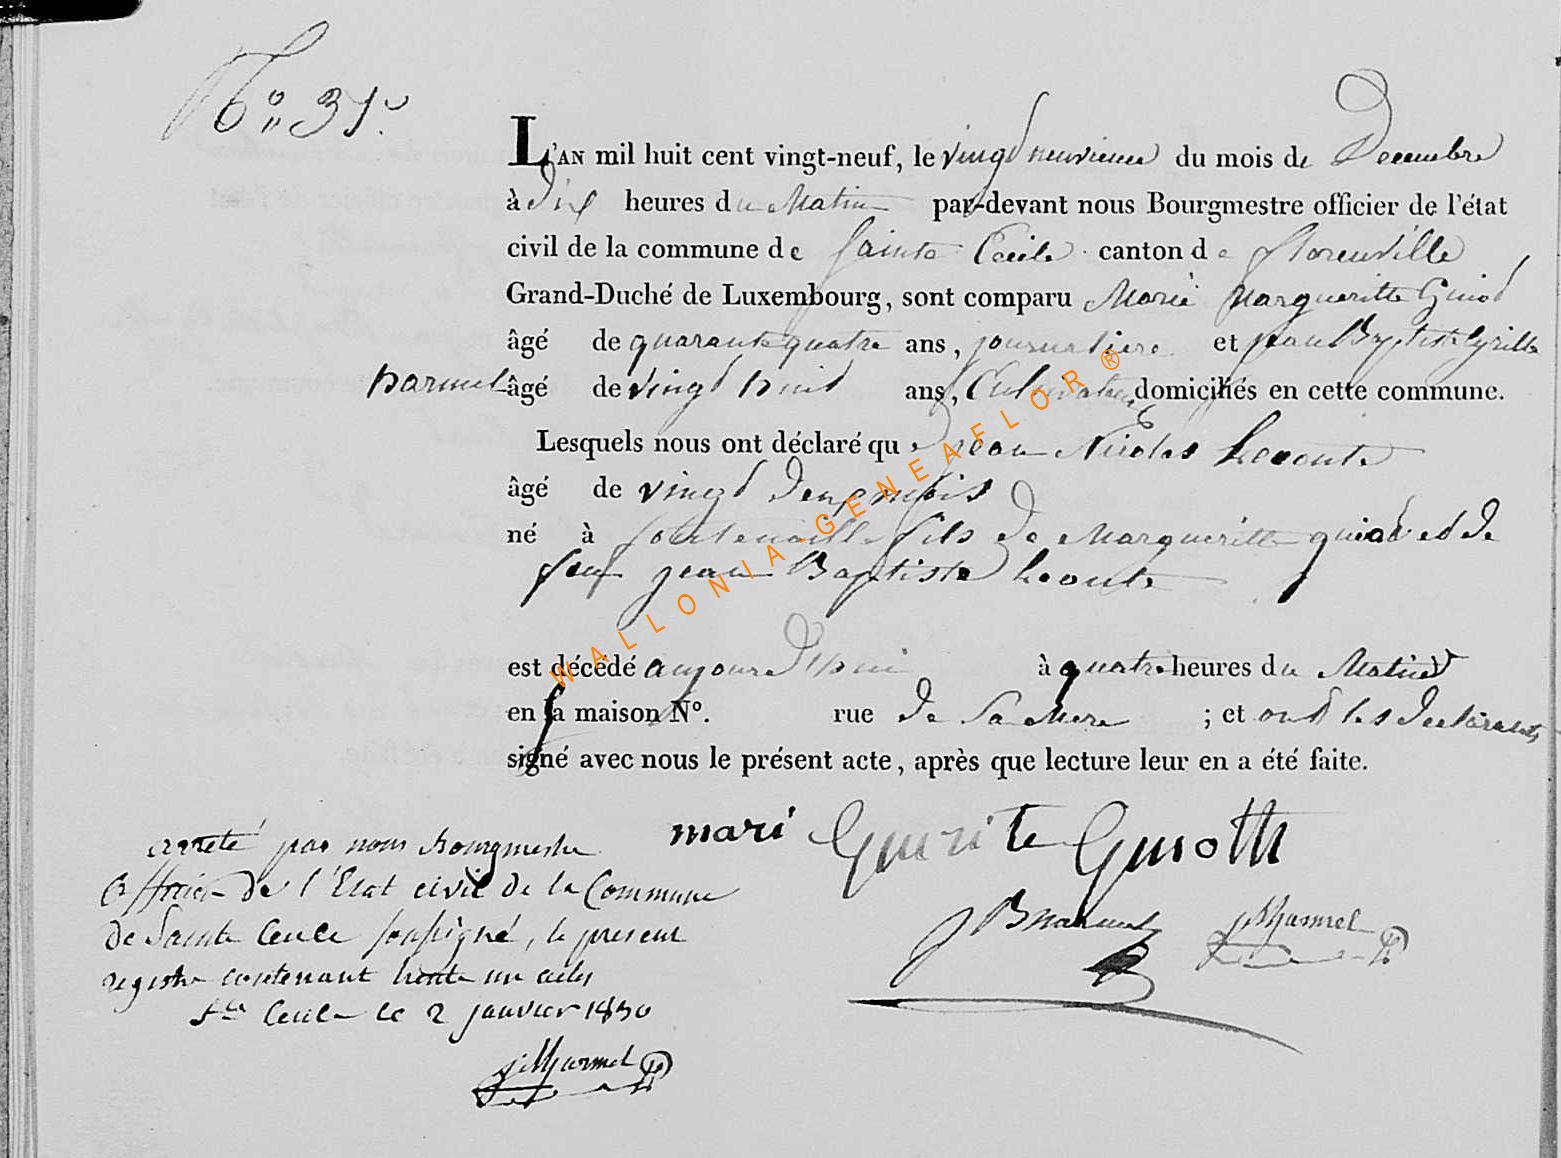 N° 31.
L'AN mil huit cent vingt-neuf, le vingt neuvieme du mois de Decembre
à dix heures du Matin par-devant nous Bourgmestre officier de l'état
civil de la commune de Sainte Cecile canton de florenville
Grand-Duché de Luxembourg, sont comparu Marie Margueritte Guiot
âgé de quarante quatre ans, journaliere et jean Baptiste Cyrille
harmel âgé de vingt huit ans, Cultivateur domiciliés en cette commune.
Lesquels nous ont déclaré que jean Nicolas Leconte
âgé de vingt deux mois
né à fontenoille fils de Margueritte guiot et de
feu jean Baptiste Leconte
est décédé aujourd'hui à quatre heures du Matin
en sa maison N°. rue de sa Mere ; et ont les declarants
signé avec nous le présent acte, après que lecture leur en a été faite.
mari Guerite Guiotti
JB harmel JHarmel
arreté par nous Bourgmestre
Officier de l'Etat civil de la Commune
de Sainte Cecile soussigné, le present
registre contenant trente un actes
Ste Cecile le 2 janvier 1830
JHarmel
WALLONIA-GENEAFLOR®